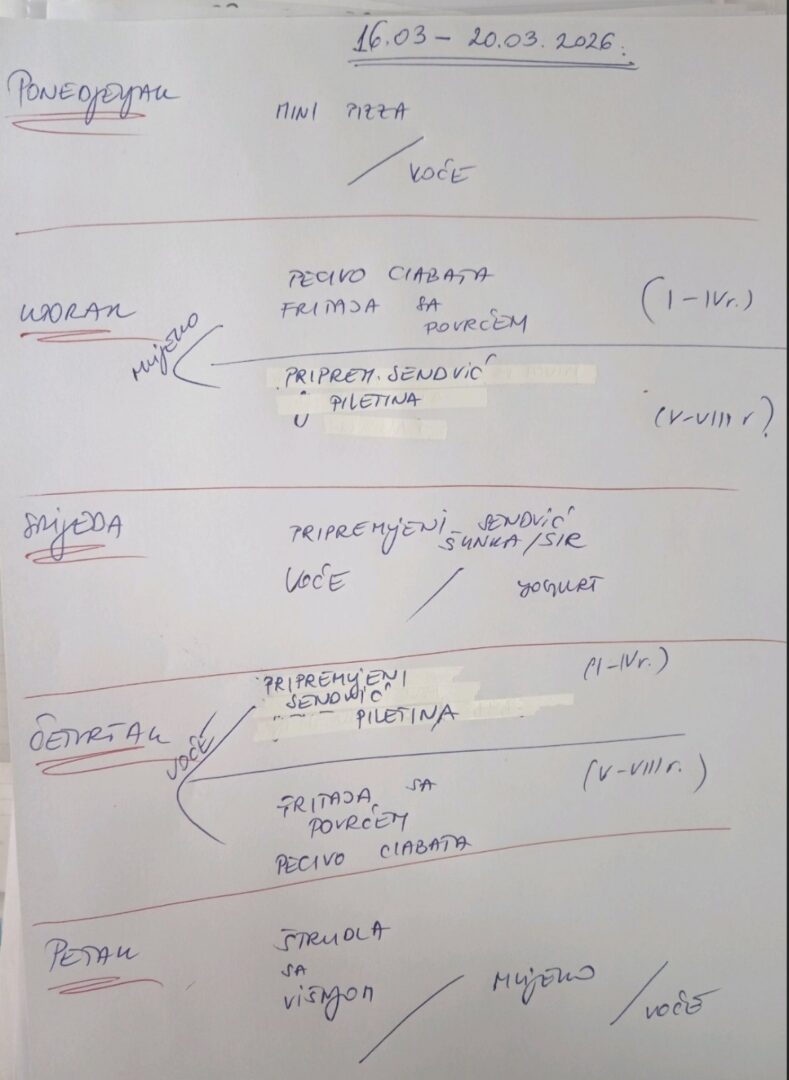 16.03 – 20.03. 2026.
PONEDJELJAK
MINI PIZZA
/ VOĆE
UTORAK
MLIJEKO
PECIVO CIABATA
FRITAJA SA
POVRĆEM
(I-IVr.)
PRIPREM. SENDVIĆ
PILETINA
(V-VIII r.)
SRIJEDA
PRIPREMLJENI SENDVIĆ
ŠUNKA/SIR
VOĆE / YOGURT
ČETVRTAK
VOĆE
PRIPREMLJENI
SENDVIĆ
PILETINA
(I-IVr.)
FRITAJA SA
POVRĆEM
PECIVO CIABATA
(V-VIII r.)
PETAK
ŠTRUDLA
SA
VIŠNJOM / MLIJEKO / VOĆE